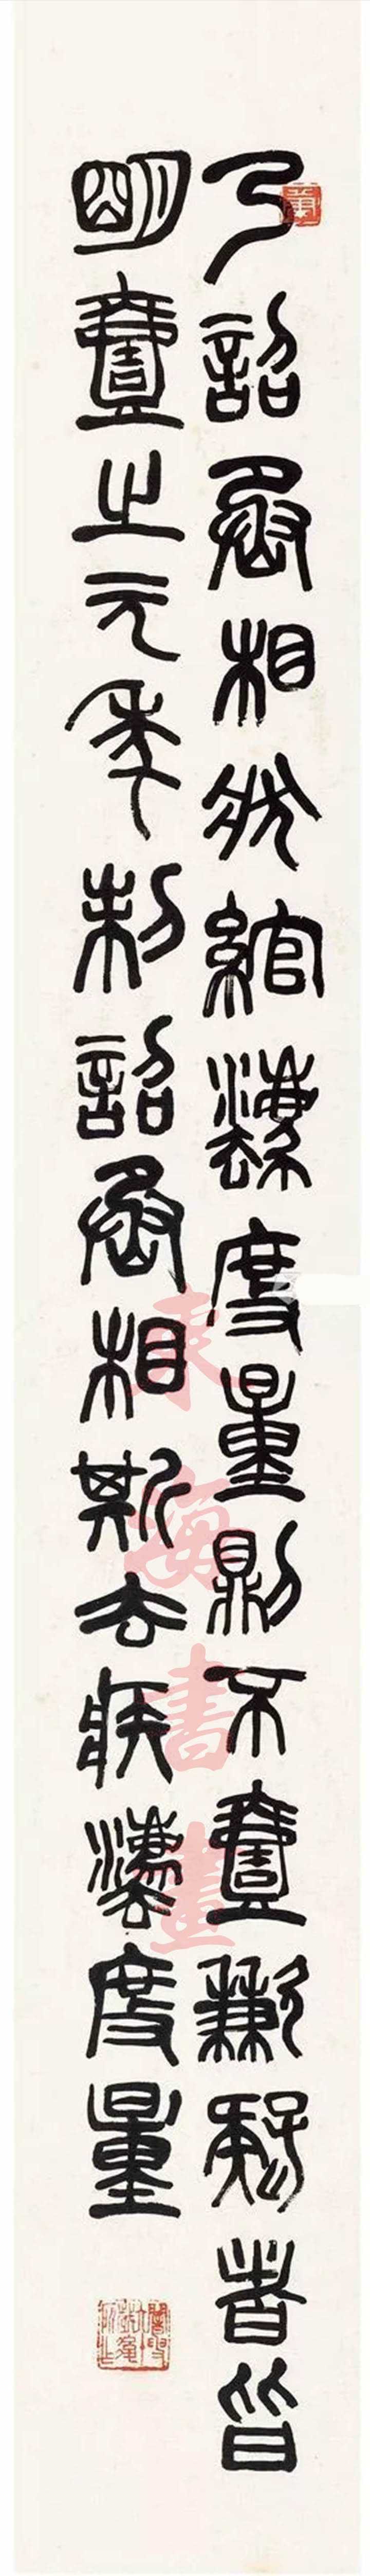 乃詔丞相狀綰灋度量則不壹歉疑者皆
明壹之元年制詔丞相斯去疾灋度量
東海書畫